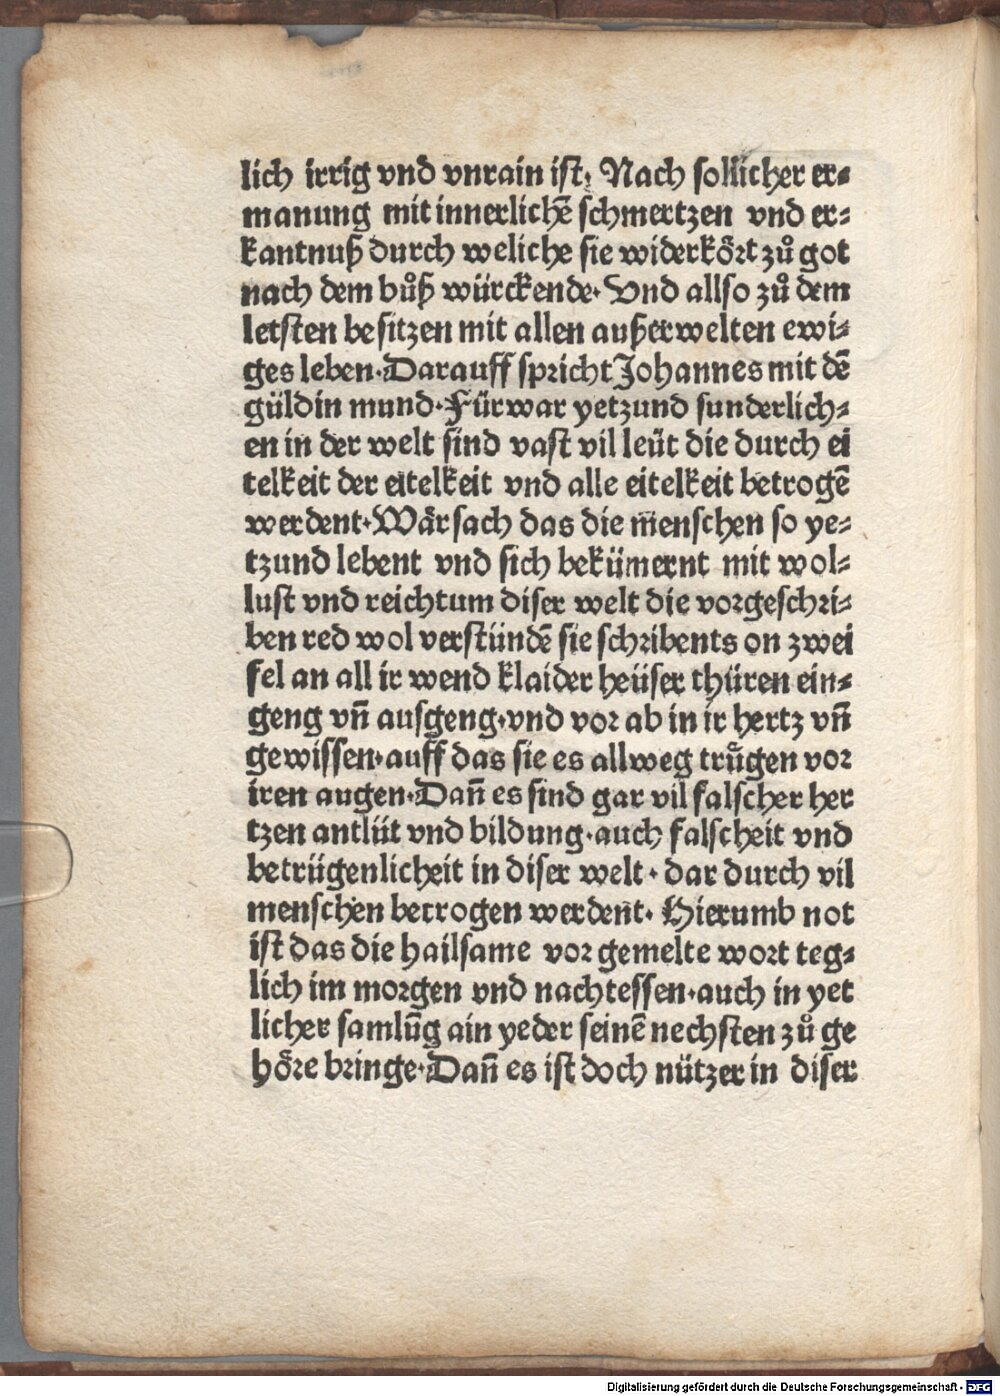 lich irrig vnd vnrain ist. Nach sollicher er⸗
manung mit innerlichẽ schmertzen vnd er⸗
kantnuß durch weliche sie widerkört zů got
nach dem bůß würckende. Vnd allso zů dem
letsten besitzen mit allen außerwelten ewi⸗
ges leben. Darauff spricht Johannes mit dẽ
güldin mund. Fürwar yetzund sunderlich⸗
en in der welt sind vast vil leüt die durch ei
telkeit der eitelkeit vnd alle eitelkeit betrogẽ
werdent. Wär sach das die menschen so ye⸗
tzund lebent vnd sich bekümernt mit wol⸗
lust vnd reichtum diser welt die vorgeschri⸗
ben red wol verstündẽ sie schribents on zwei
fel an all ir wend klaider heüser thüren ein⸗
geng vñ ausgeng. vnd vor ab in ir hertz vñ
gewissen. auff das sie es allweg trůgen vor
iren augen. Dañ es sind gar vil falscher her
tzen antlüt vnd bildung. auch falscheit vnd
betrügenlicheit in diser welt. dar durch vil
menschen betrogen werdent. Hierumb not
ist das die hailsame vor gemelte wort teg⸗
lich im morgen vnd nachtessen. auch in yet
licher samlũg ain yeder seinẽ nechsten zů ge
höre bringe. Dañ es ist doch nützer in diser
Digitalisierung gefördert durch die Deutsche Forschungsgemeinschaft - DFG